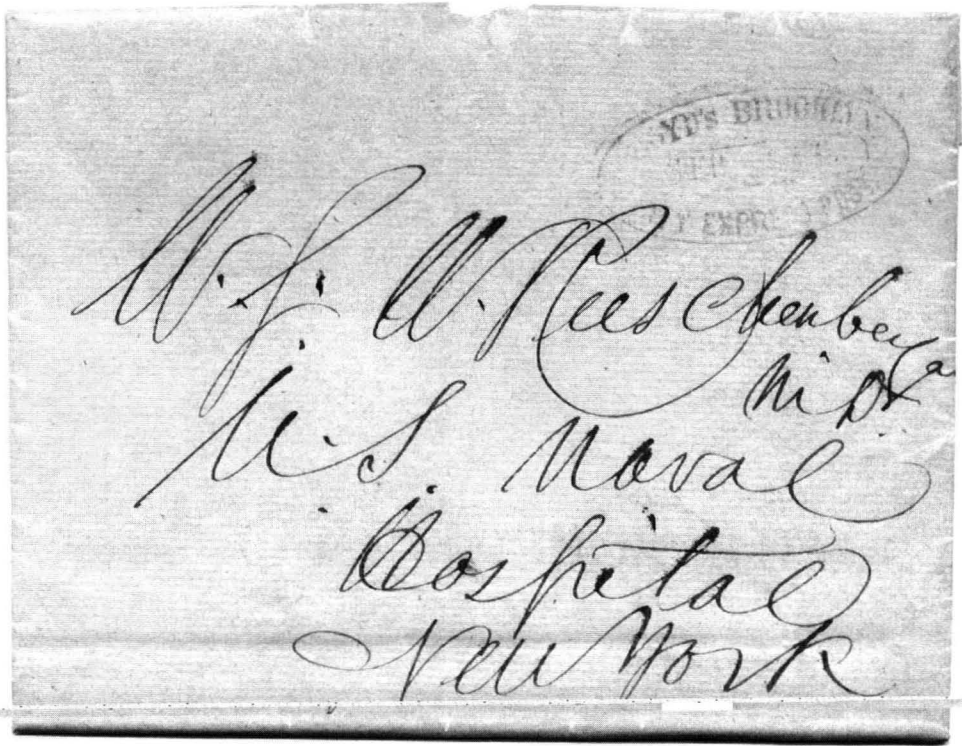 YD'S BROOKLY
Y EXPRE POST
W. S. W. Rueschenberger
M D
U. S. Naval
Hospital
New York